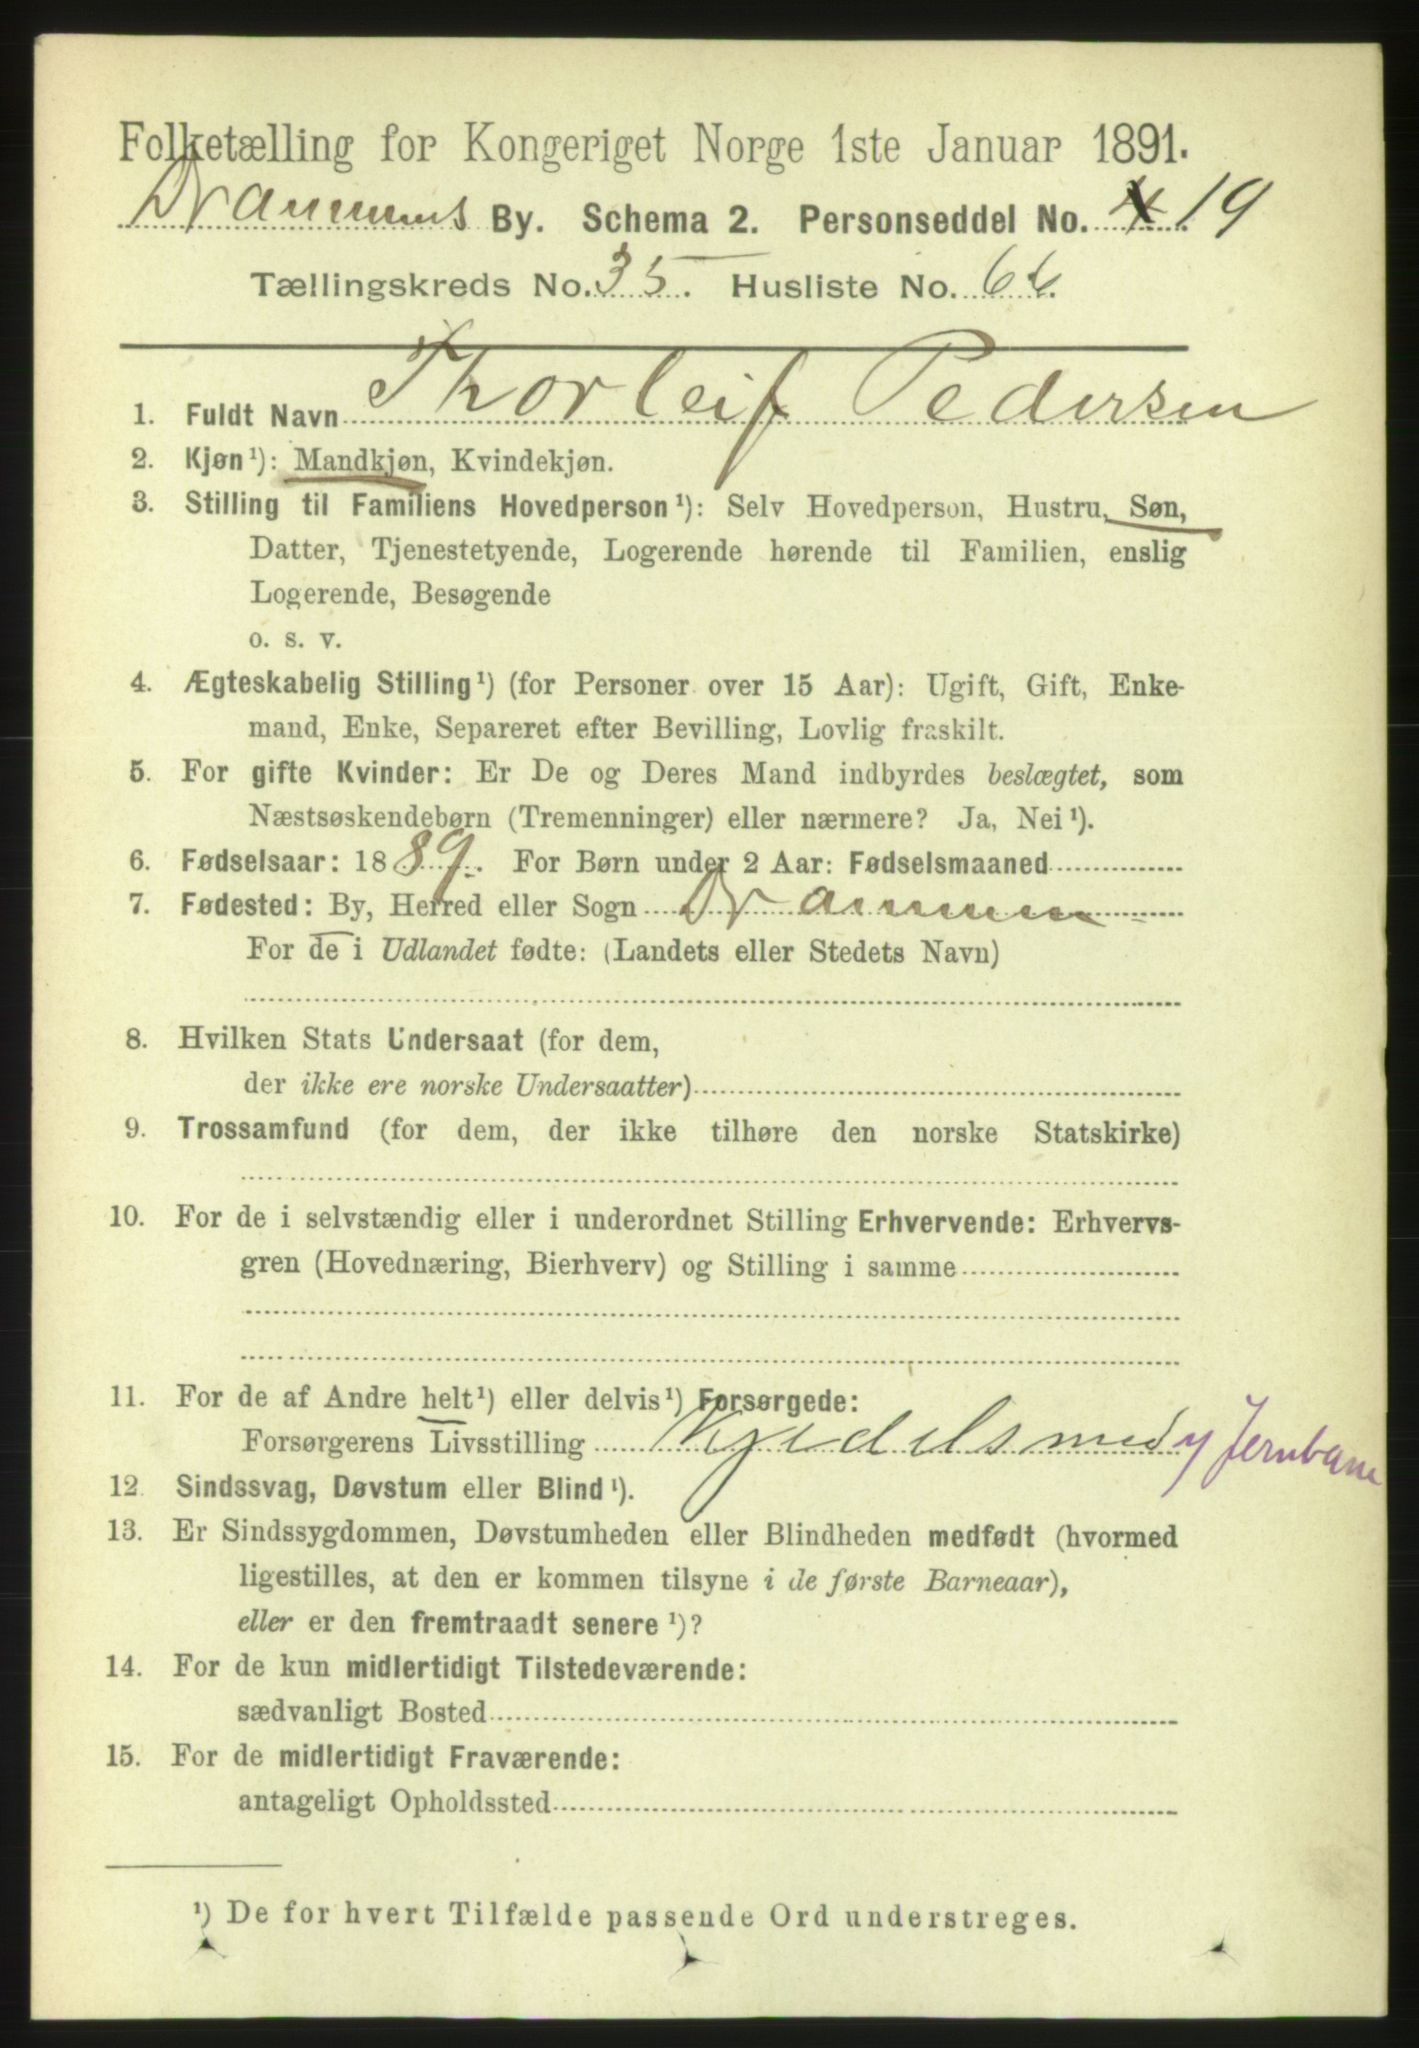 Folketælling for Kongeriget Norge 1ste Januar 1891.
Drammens By. Schema 2. Personseddel No. 4 19
Tællingskreds No. 35. Husliste No. 66.
1. Fuldt Navn Thorleif Pedersen
2. Kjøn¹): Mandkjøn, Kvindekjøn.
3. Stilling til Familiens Hovedperson¹): Selv Hovedperson, Hustru, Søn,
Datter, Tjenestetyende, Logerende hørende til Familien, enslig
Logerende, Besøgende
o. s. v.
4. Ægteskabelig Stilling¹) (for Personer over 15 Aar): Ugift, Gift, Enke-
mand, Enke, Separeret efter Bevilling, Lovlig fraskilt.
5. For gifte Kvinder: Er De og Deres Mand indbyrdes beslægtet, som
Næstsøskendebørn (Tremenninger) eller nærmere? Ja, Nei¹).
6. Fødselsaar: 1889. For Børn under 2 Aar: Fødselsmaaned
7. Fødested: By, Herred eller Sogn Drammen
For de i Udlandet fødte: (Landets eller Stedets Navn)
8. Hvilken Stats Undersaat (for dem,
der ikke ere norske Undersaatter)
9. Trossamfund (for dem, der ikke tilhøre den norske Statskirke)
10. For de i selvstændig eller i underordnet Stilling Erhvervende: Erhvervs-
gren (Hovednæring, Bierhverv) og Stilling i samme
11. For de af Andre helt¹) eller delvis¹) Forsørgede:
Forsørgerens Livsstilling Kjedelsmed v Jernbane
12. Sindssvag, Døvstum eller Blind¹).
13. Er Sindssygdommen, Døvstumheden eller Blindheden medfødt (hvormed
ligestilles, at den er kommen tilsyne i de første Barneaar),
eller er den fremtraadt senere¹)?
14. For de kun midlertidigt Tilstedeværende:
sædvanligt Bosted
15. For de midlertidigt Fraværende:
antageligt Opholdssted
¹) De for hvert Tilfælde passende Ord understreges.